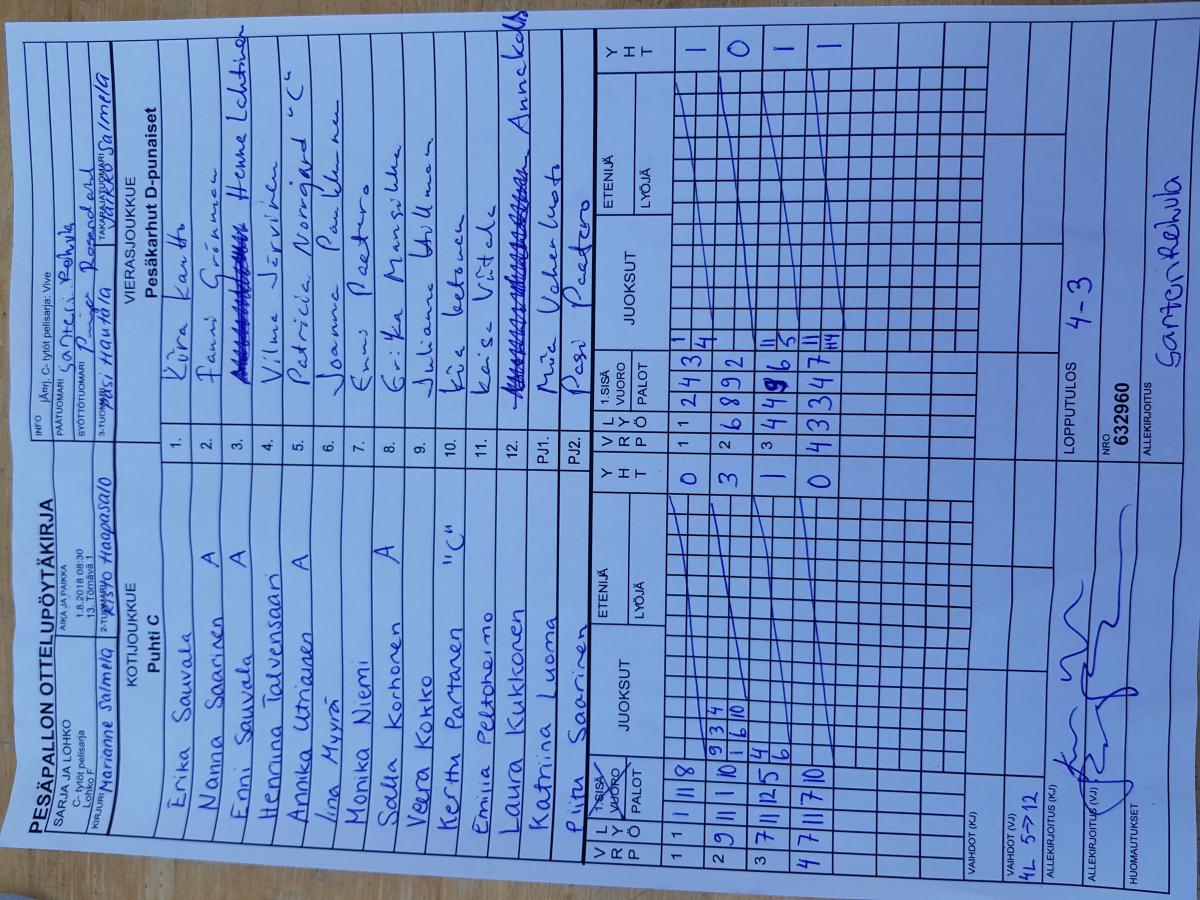 PESÄPALLON OTTELUPÖYTÄKIRJA
SARJA JA LOHKO
C- tytöt pelisarja
Lohko F
AIKA JA PAIKKA
1.8.2018 08:30
13. Törnävä 1
INFO jÄnrj. C- tytöt pelisarja: Vive
PÄÄTUOMARI Santeri Rehula
SYÖTTÖTUOMARI
KIRJURI Marianne Salmela
2-TUOMARI Risto Haapasalo
3-TUOMARI Pasi Hautala
TAKARAJATUOMARI Salmela
KOTIJOUKKUE
Puhti C
VIERASJOUKKUE
Pesäkarhut D-punaiset
Erika Sauvala 1. Kiira Kantto
Nanna Saarinen A 2. Fanni Grönman
Enni Sauvala A 3. Henna Lehtinen
Henniina Talvensaari 4. Vilma Järvinen
Annika Utriainen A 5. Patricia Norrgård "C"
Iina Myyrä 6. Joanna
Monika Niemi 7. Emmi Paetero
Salla Korhonen A 8. Erika Mansikka
Veera Kokko 9. Julianna Ullman
Kerttu Partanen "C" 10. Kia Ketonen
Emilia Peltoheimo 11. Kaisa
Laura Kukkonen 12.
Katriina Luoma PJ1. Miia Vahenluoto
Piitu Saarinen PJ2. Pasi Paatero
V R P L Y Ö 1.SISÄ VUORO PALOT JUOKSUT ETENIJÄ LYÖJÄ Y H T V R P L Y Ö 1.SISÄ VUORO PALOT JUOKSUT ETENIJÄ LYÖJÄ Y H T
1 1 1 11 8 0 1 1 2 4 3 1 4 1
2 9 11 1 10 9 3 4 1 6 10 3 2 6 8 9 2 0
3 7 11 12 5 4 6 1 3 4 4 9 6 11 5 1
4 7 11 7 10 0 4 3 3 4 7 11 H4 1
VAIHDOT (KJ)
VAIHDOT (VJ)
4L 5->12
LOPPUTULOS 4-3
ALLEKIRJOITUS (KJ)
ALLEKIRJOITUS (VJ)
NRO
632960
HUOMAUTUKSET
ALLEKIRJOITUS
Santeri Rehula